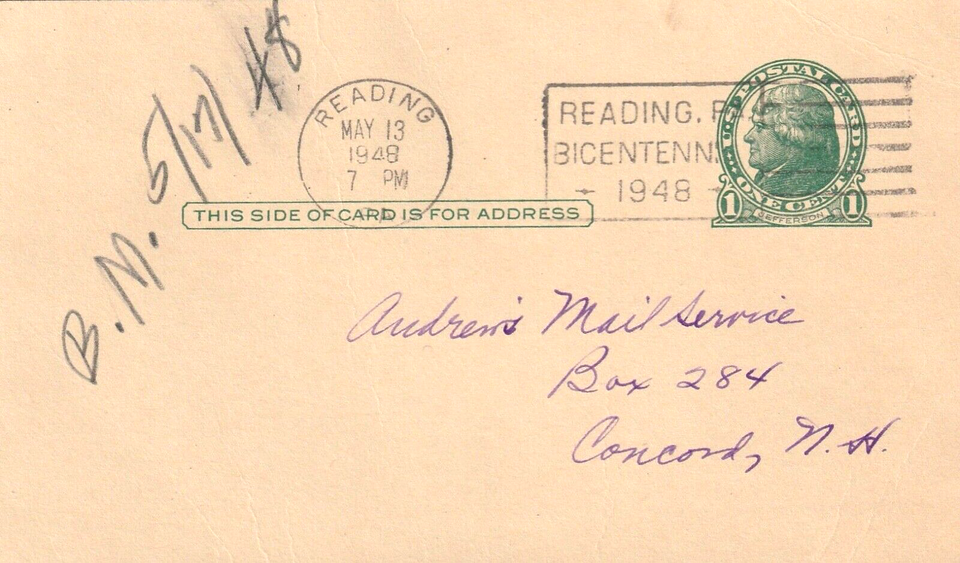 B. M. 5/17/48
READING
MAY 13
1948
7 PM
PA
READING, PA.
BICENTENN
1948
U.S. POSTAL CARD
1 ONE CENT 1
JEFFERSON
THIS SIDE OF CARD IS FOR ADDRESS
Andrew's Mail Service
Box 284
Concord, N.H.